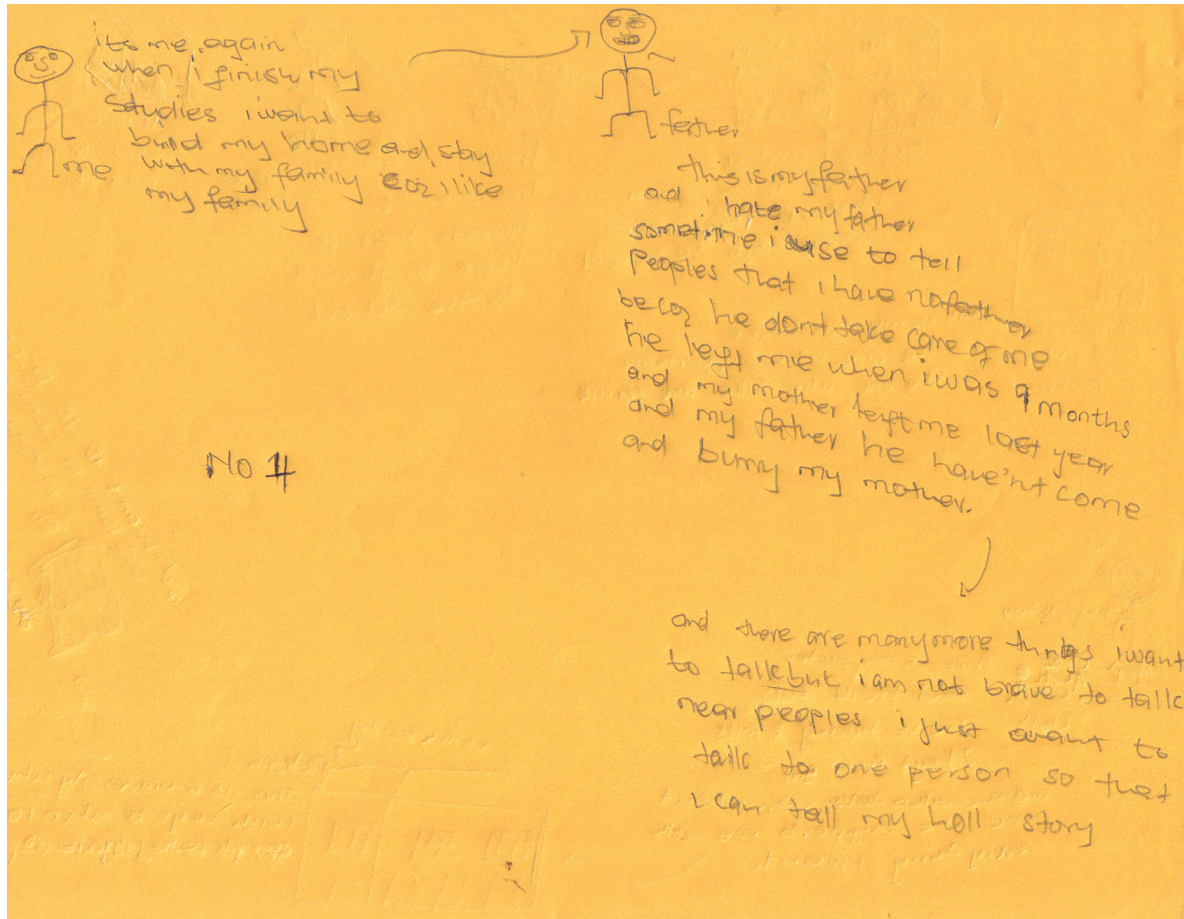 its me again
when i finish my
studies i want to
build my home and stay
with my family coz i like
my family
me
father
this is my father
and i hate my father
sometime i use to tell
peoples that i have no father
becoz he dont take care of me
he left me when i was 9 months
and my mother left me last year
and my father he have'nt come
and burry my mother.
No 4
and there are many more things i want
to talk but i am not brave to talk
near peoples i just want to
talk to one person so that
i can tell my holl story